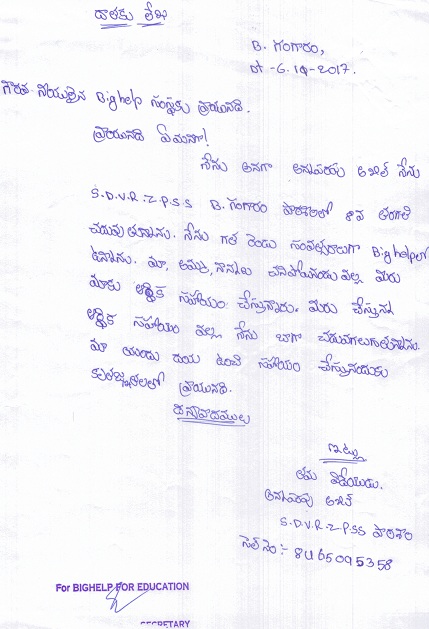 దాతకు లేఖ
B. గంగారం,
dt -6.10-2017.
గౌరవ నీయులైన Big help సంస్థకు వ్రాయునది.
వ్రాయునది ఏమనగా!
నేను అనగా అనపర్తి అఖిల్ నేను
S.D.V.R.Z.P.S.S B. గంగారం పాఠశాలలో 8వ తరగతి
చదువు తున్నాను. నేను గత రెండు సంవత్సరాలుగా Big helpలో
ఉన్నాను. మా, అమ్మ, నాన్నలు చనిపోయినందు వల్ల మీరు
మాకు ఆర్థిక సహాయం చేస్తున్నారు. మీరు చేస్తున్న
ఆర్థిక సహాయం వల్ల నేను బాగా చదువగలుగుతున్నాను.
మా యందు దయ ఉంచి సహాయం చేస్తునందుకు
కృతజ్ఞతలతో వ్రాయునది.
ధన్యవాదములు
ఇట్లు
తమ విధేయుడు.
అఖిల్
S.D.V.R-Z-P.SS పాఠశాల
సెల్ నెం :- 8465095358
For BIGHELP FOR EDUCATION
SECRETARY